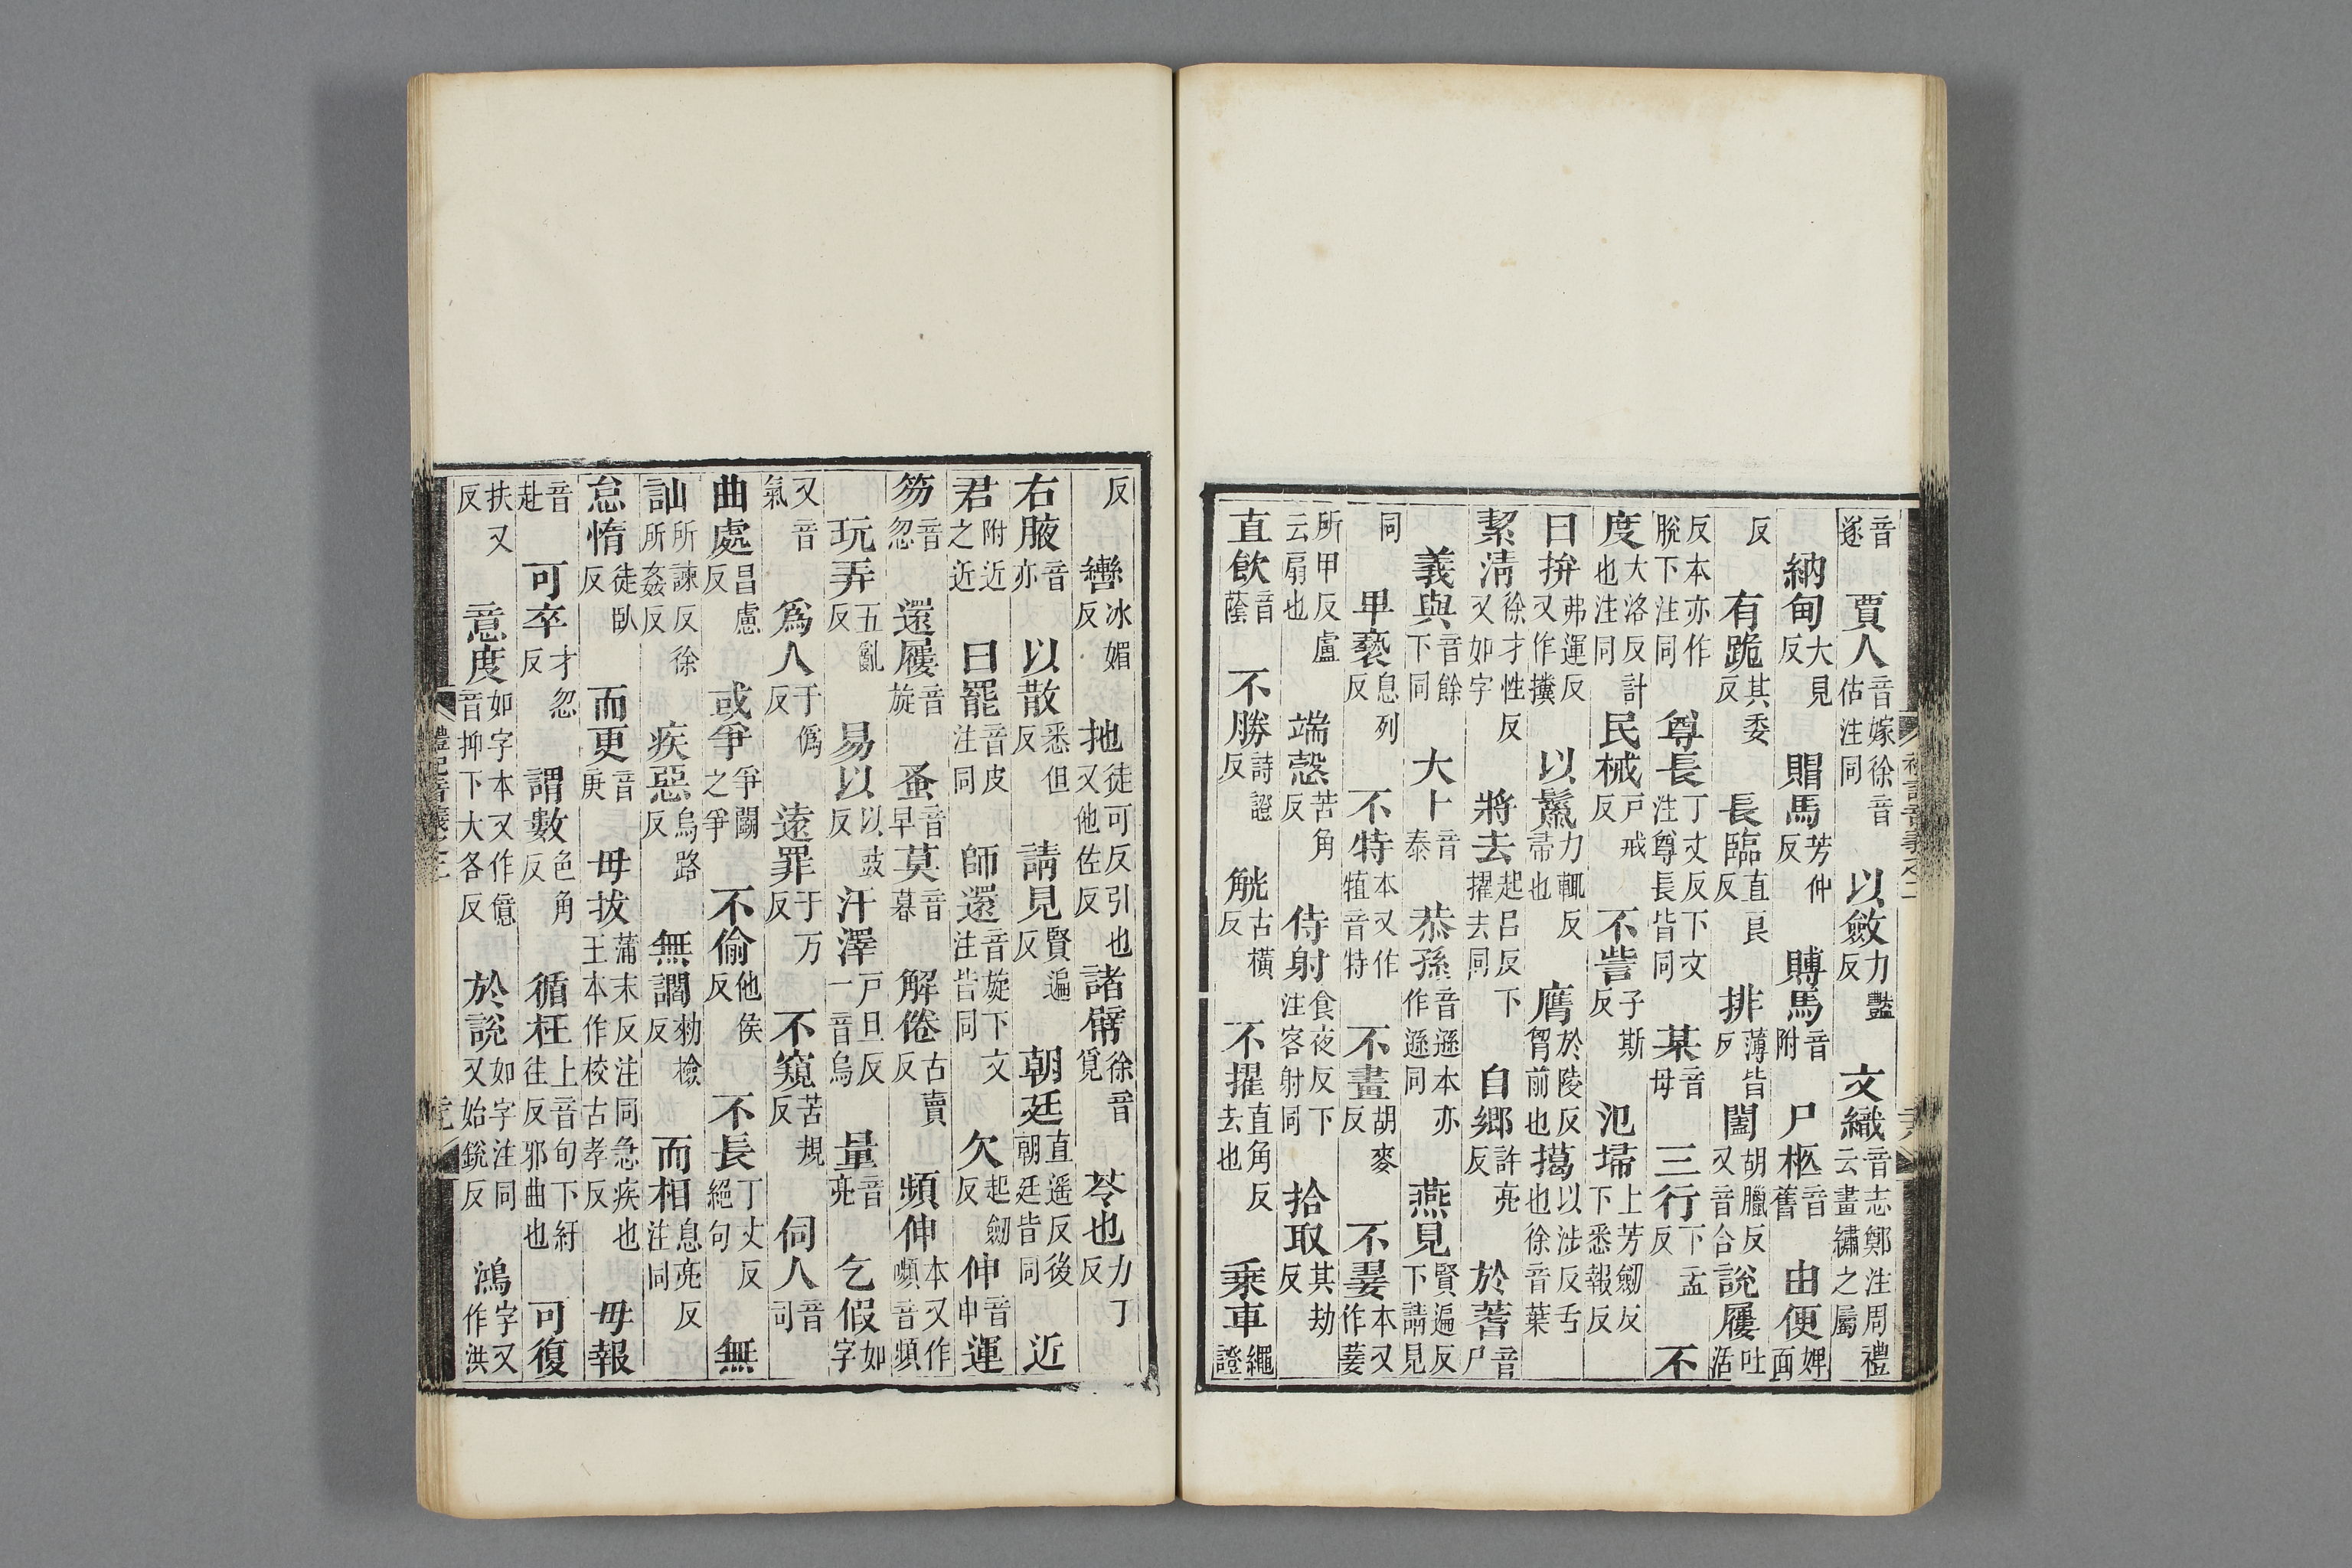 音遂賈人音嫁徐音估注同以斂力豔反文織音志鄭注周禮云畫繡之屬
納甸大見反賵馬芳仲反賻馬音附尸柩音舊由便婢面
反有跪其委反長臨直良反排薄皆反闔胡臘反又音合說屨吐活
反本亦作脫下注同尊長丁丈反下文注尊長皆同某音母三行下孟反不
度大洛反計也注同民械戸戒反不訾子斯反氾埽上芳劒反下悉報反
曰拚弗運反又作攩以鬛力輒反帚也膺於陵反胷前也擖以涉反舌也徐音葉
絜清徐才性反又如字將去起吕反下擢去同自鄉許亮反於蓍音尸
義與音餘下同大卜音泰恭孫音遜本亦作遜同燕見賢遍反下請見
同卑褻息列反不特本又作犆音特不畫胡麥反不翣本又作萋
所甲反盧云扇也端愨苦角反侍射食夜反下注客射同拾取其劫反
直飲音蔭不勝詩證反觥古橫反不擢直角反去也乗車繩證
反轡冰媚反拖徒可反引也又他佐反諸幦徐音覓苓也力丁反
右腋音亦以散悉但反請見賢遍反朝廷直遥反後朝廷皆同近
君附近之近曰罷音皮注同師還音旋下文注皆同欠起劒反伸音申運
笏音忽還屨音旋蚤音早莫音暮解倦古賣反頻伸本又作嚬音頻
玩弄五亂反易以以豉反汗澤戸旦反一音烏量音亮乞假如字
又音氣爲人于僞反遠罪于万反不窺苦規反伺人音司
曲處昌慮反或爭爭鬭之爭不偷他侯反不長丁丈反絕句無
訕所諫反徐所姦反疾惡烏路反無讇勑檢反而相息亮反注同
怠惰徒臥反而更音庚毋拔蒲末反注同急疾也王本作校古孝反毋報
音赴可卒才忽反謂數色角反循枉上音旬下紆往反邪曲也可復
扶又反意度如字本又作億音抑下大各反於說如字注同又始銳反鴻字又作洪
禮記音義